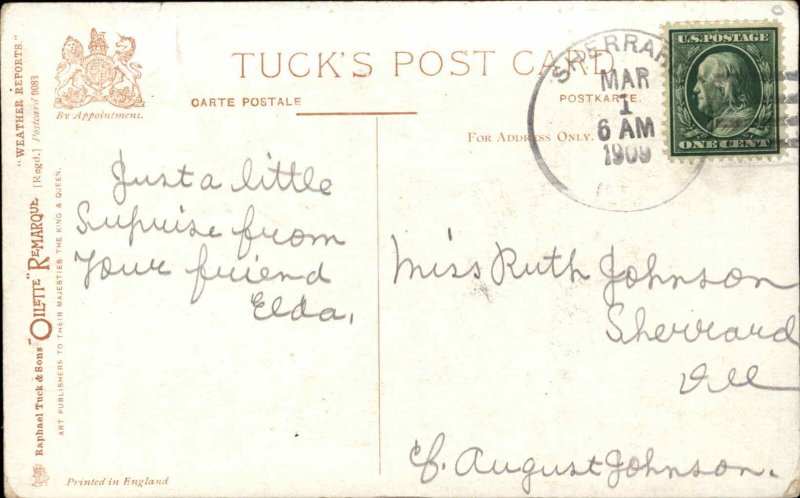 TUCK'S POST CARD
CARTE POSTALE
POSTKARTE.
FOR ADDRESS ONLY.
By Appointment.
"WEATHER REPORTS."
[Regd.] Postcard 9083
Raphael Tuck & Sons' "OILETTE" REMARQUE
ART PUBLISHERS TO THEIR MAJESTIES THE KING & QUEEN.
Printed in England
MAR
1
6 AM
1909
U.S. POSTAGE
ONE CENT
Just a little
Surprise from
Your friend
Elda,
Miss Ruth Johnson
Sherrard
Ill
c/. August Johnson.